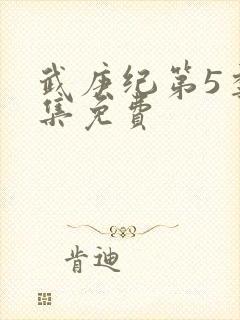 武庚纪第5季
集免費
肯迪